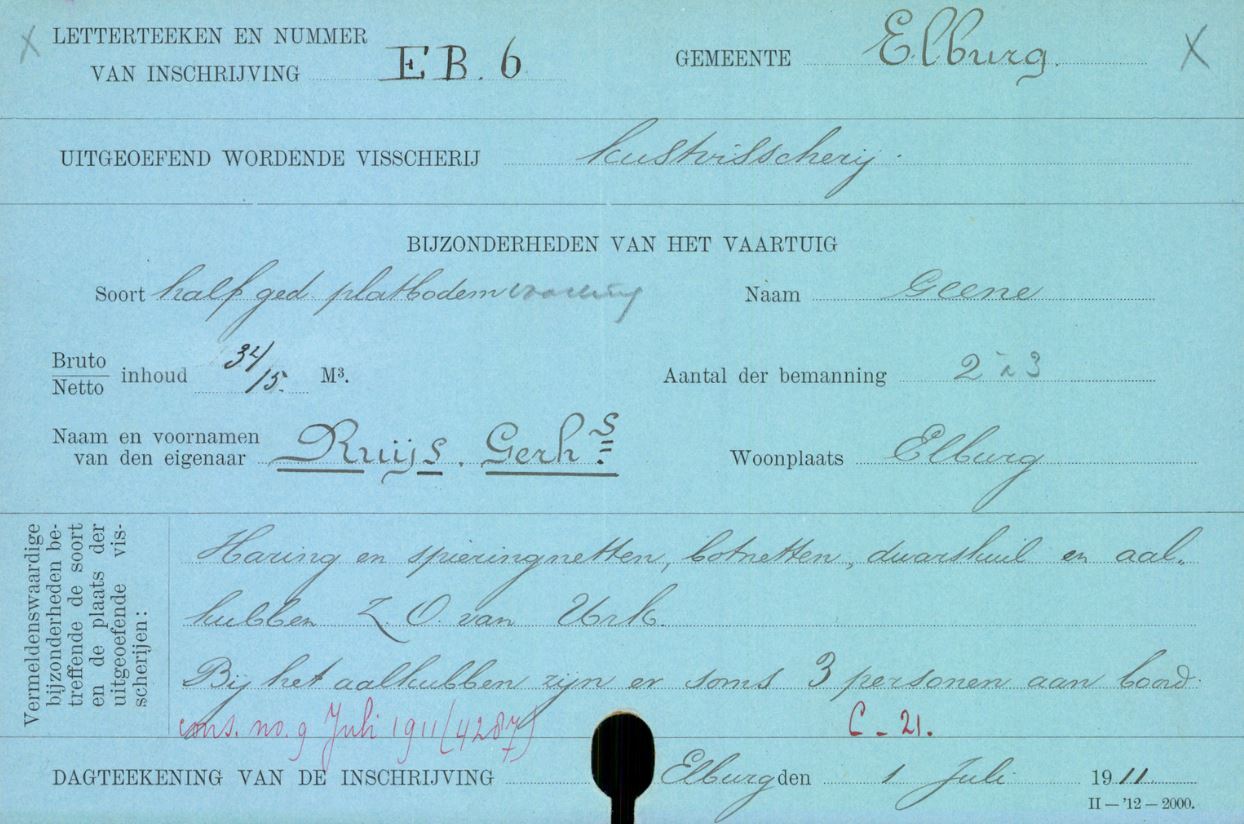 X LETTERTEEKEN EN NUMMER
VAN INSCHRIJVING EB. 6 GEMEENTE Elburg. X
UITGEOEFEND WORDENDE VISSCHERIJ kustvisscherij.
BIJZONDERHEDEN VAN HET VAARTUIG
Soort half ged. platbodem Naam Geene
Bruto
Netto inhoud 34/15. M³. Aantal der bemanning 2 à 3
Naam en voornamen
van den eigenaar Ruijs. Gerhs. Woonplaats Elburg
Vermeldenswaardige
bijzonderheden be-
treffende de soort
en de plaats der
uitgeoefende vis-
scherijen:
Haring en spieringnetten, botnetten, dwarskuil en aal-
kubben Z. O. van Urk.
Bij het aalkubben zijn er soms 3 personen aan boord.
no. 9 Juli 1911 (4287) C - 21.
DAGTEEKENING VAN DE INSCHRIJVING Elburg den 1 Juli 1911.
II — '12 — 2000.